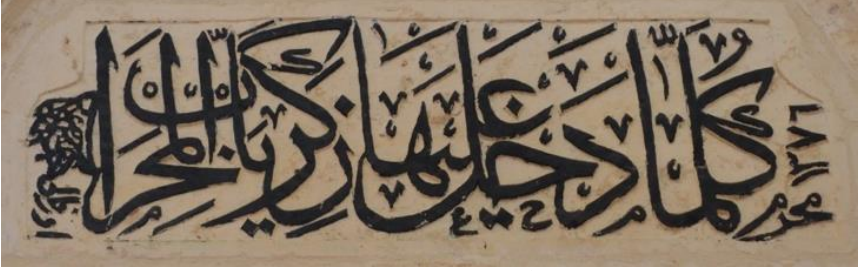 كُلَّمَا دَخَلَ عَلَيْهَا زَكَرِيَّا الْمِحْرَابَ
محرم